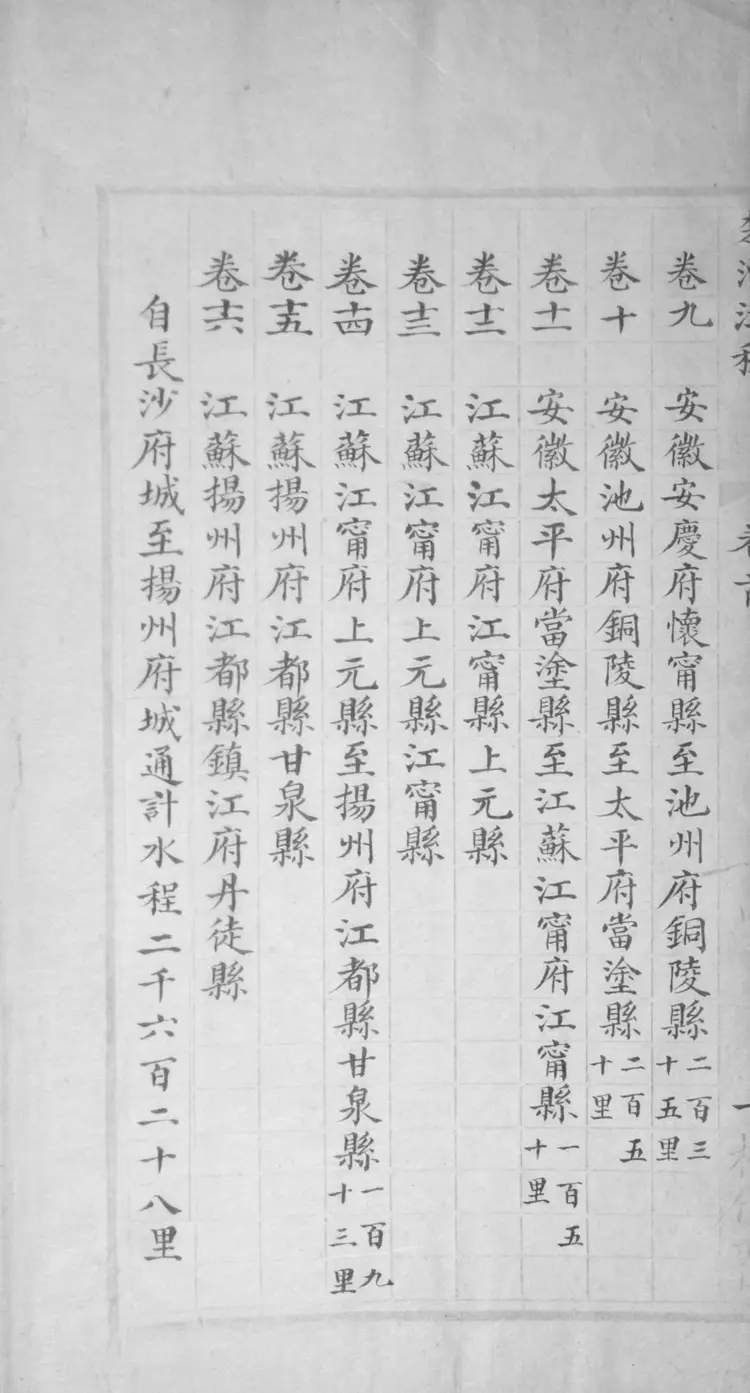 卷九　安徽安慶府懷甯縣至池州府銅陵縣二百三十五里
卷十　安徽池州府銅陵縣至太平府當塗縣二百五十里
卷十一　安徽太平府當塗縣至江蘇江甯府江甯縣一百五十里
卷十二　江蘇江甯府江甯縣上元縣
卷十三　江蘇江甯府上元縣江甯縣
卷十四　江蘇江甯府上元縣至揚州府江都縣甘泉縣一百九十三里
卷十五　江蘇揚州府江都縣甘泉縣
卷十六　江蘇揚州府江都縣鎮江府丹徒縣
自長沙府城至揚州府城通計水程二千六百二十八里